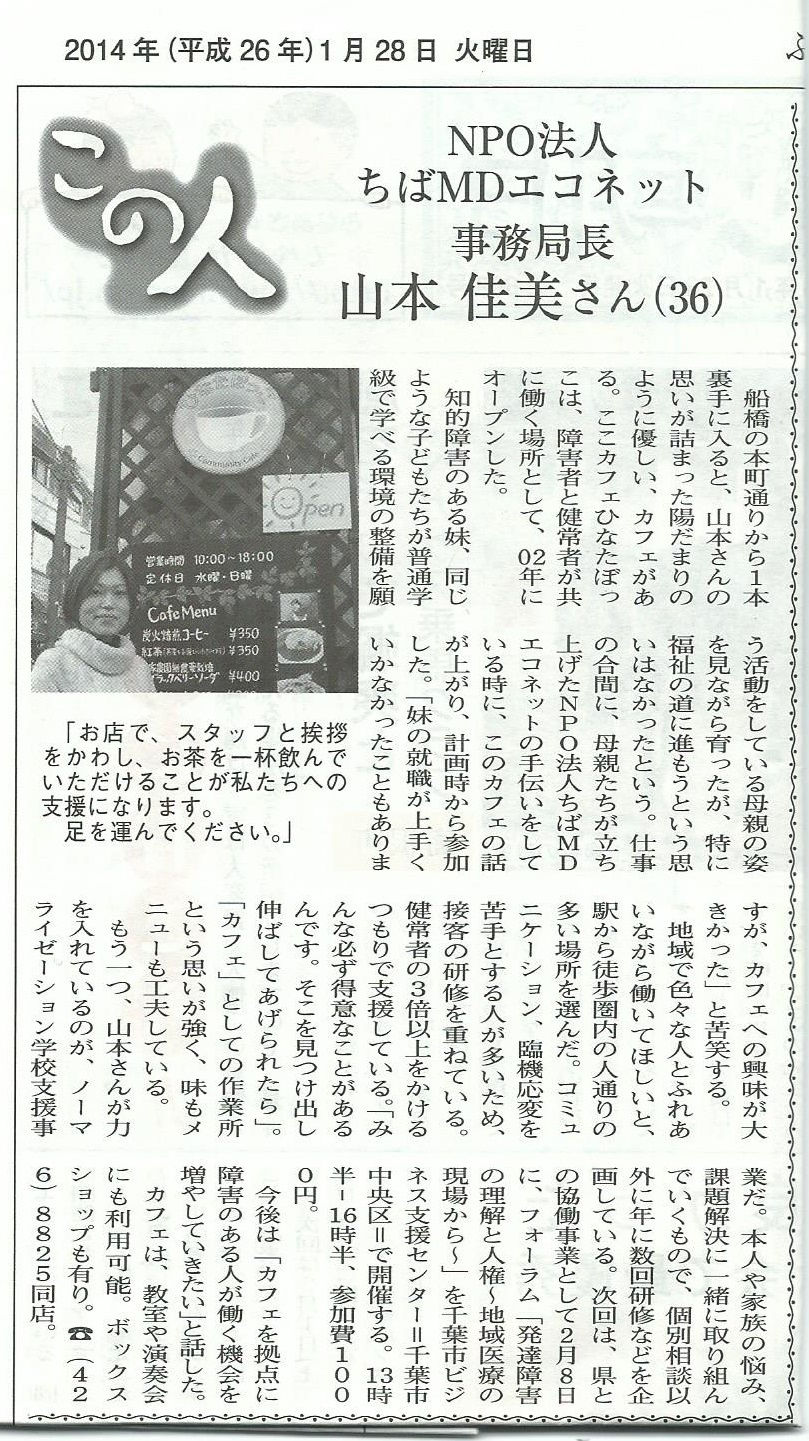 2014年(平成26年)1月28日 火曜日
ふ
この人
NPO法人
ちばMDエコネット
事務局長
山本 佳美さん(36)
船橋の本町通りから1本
裏手に入ると、山本さんの
思いが詰まった陽だまりの
ように優しい、カフェがあ
る。ここカフェひなたぼっ
こは、障害者と健常者が共
に働く場所として、02年に
オープンした。
知的障害のある妹、同じ
ような子どもたちが普通学
級で学べる環境の整備を願
う活動をしている母親の姿
を見ながら育ったが、特に
福祉の道に進もうという思
いはなかったという。仕事
の合間に、母親たちが立ち
上げたNPO法人ちばMD
エコネットの手伝いをして
いる時に、このカフェの話
が上がり、計画時から参加
した。「妹の就職が上手く
いかなかったこともありま
すが、カフェへの興味が大
きかった」と苦笑する。
地域で色々な人とふれあ
いながら働いてほしいと、
駅から徒歩圏内の人通りの
多い場所を選んだ。コミュ
ニケーション、臨機応変を
苦手とする人が多いため、
接客の研修を重ねている。
健常者の3倍以上をかける
つもりで支援している。「み
んな必ず得意なことがある
んです。そこを見つけ出し
伸ばしてあげられたら」。
「カフェ」としての作業所
という思いが強く、味もメ
ニューも工夫している。
もう一つ、山本さんが力
を入れているのが、ノーマ
ライゼーション学校支援事
業だ。本人や家族の悩み、
課題解決に一緒に取り組ん
でいくもので、個別相談以
外に年に数回研修などを企
画している。次回は、県と
の協働事業として2月8日
に、フォーラム「発達障害
の理解と人権～地域医療の
現場から～」を千葉市ビジ
ネス支援センター=千葉市
中央区=で開催する。13時
半-16時半、参加費100
0円。
今後は「カフェを拠点に
障害のある人が働く機会を
増やしていきたい」と話した。
カフェは、教室や演奏会
にも利用可能。ボックス
ショップも有り。☎(42
6)8825同店。
Community Cafe
Open
営業時間 10:00～18:00
定休日 水曜・日曜
Cafe Menu
炭火焙煎コーヒー ¥350
紅茶 ¥350
ブラックベリーソーダ ¥400
¥200
「お店で、スタッフと挨拶
をかわし、お茶を一杯飲んで
いただけることが私たちへの
支援になります。
足を運んでください。」